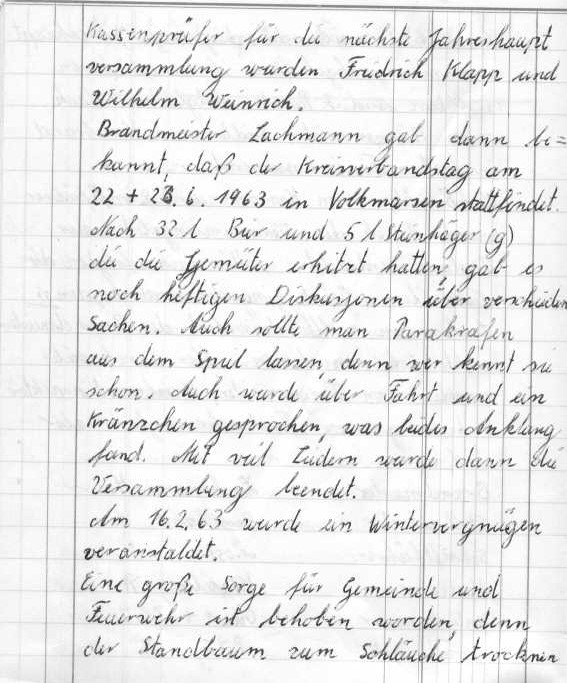 Kassenprüfer für die nächste Jahreshaupt
versammlung wurden Friedrich Klapp und
Wilhelm Weinrich.
Brandmeister Lachmann gab dann be=
kannt, daß der Kreisverbandstag am
22 + 23. 6. 1963 in Volkmarsen stattfindet.
Nach 32 l Bier und 5 l Steinhäger (g)
die die Gemüter erhitzt hatten, gab es
noch heftigen Diskusjonen über verschieden
Sachen. Auch sollte man Parakrafen
aus dem Spiel lassen, denn wer kennt sie
schon. Auch wurde über Fahrt und ein
Kränzchen gesprochen, was beides Anklang
fand. Mit viel Liedern wurde dann die
Versammlung beendet.
Am 16.2.63 wurde ein Wintervergnügen
veranstaldet.
Eine große Sorge für Gemeinde und
Feuerwehr ist behoben worden, denn
der Standbaum zum Schläuche trocknen